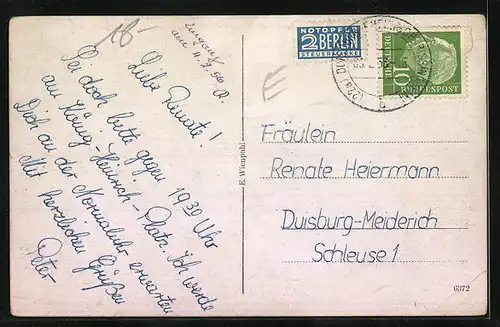 15-
am 4.2.56
NOTOPFER
2 BERLIN
STEUERMARKE
10
BUNDESPOST
(22a)
Liebe Renate!
Sei doch bitte gegen 19³⁰ Uhr
am König-Heinrich-Platz. Ich werde
Dich an der Normaluhr erwarten
Mit herzlichen Grüßen
Peter
E. Wienpahl
Fräulein
Renate Heiermann
Duisburg-Meiderich
Schleuse 1
6372